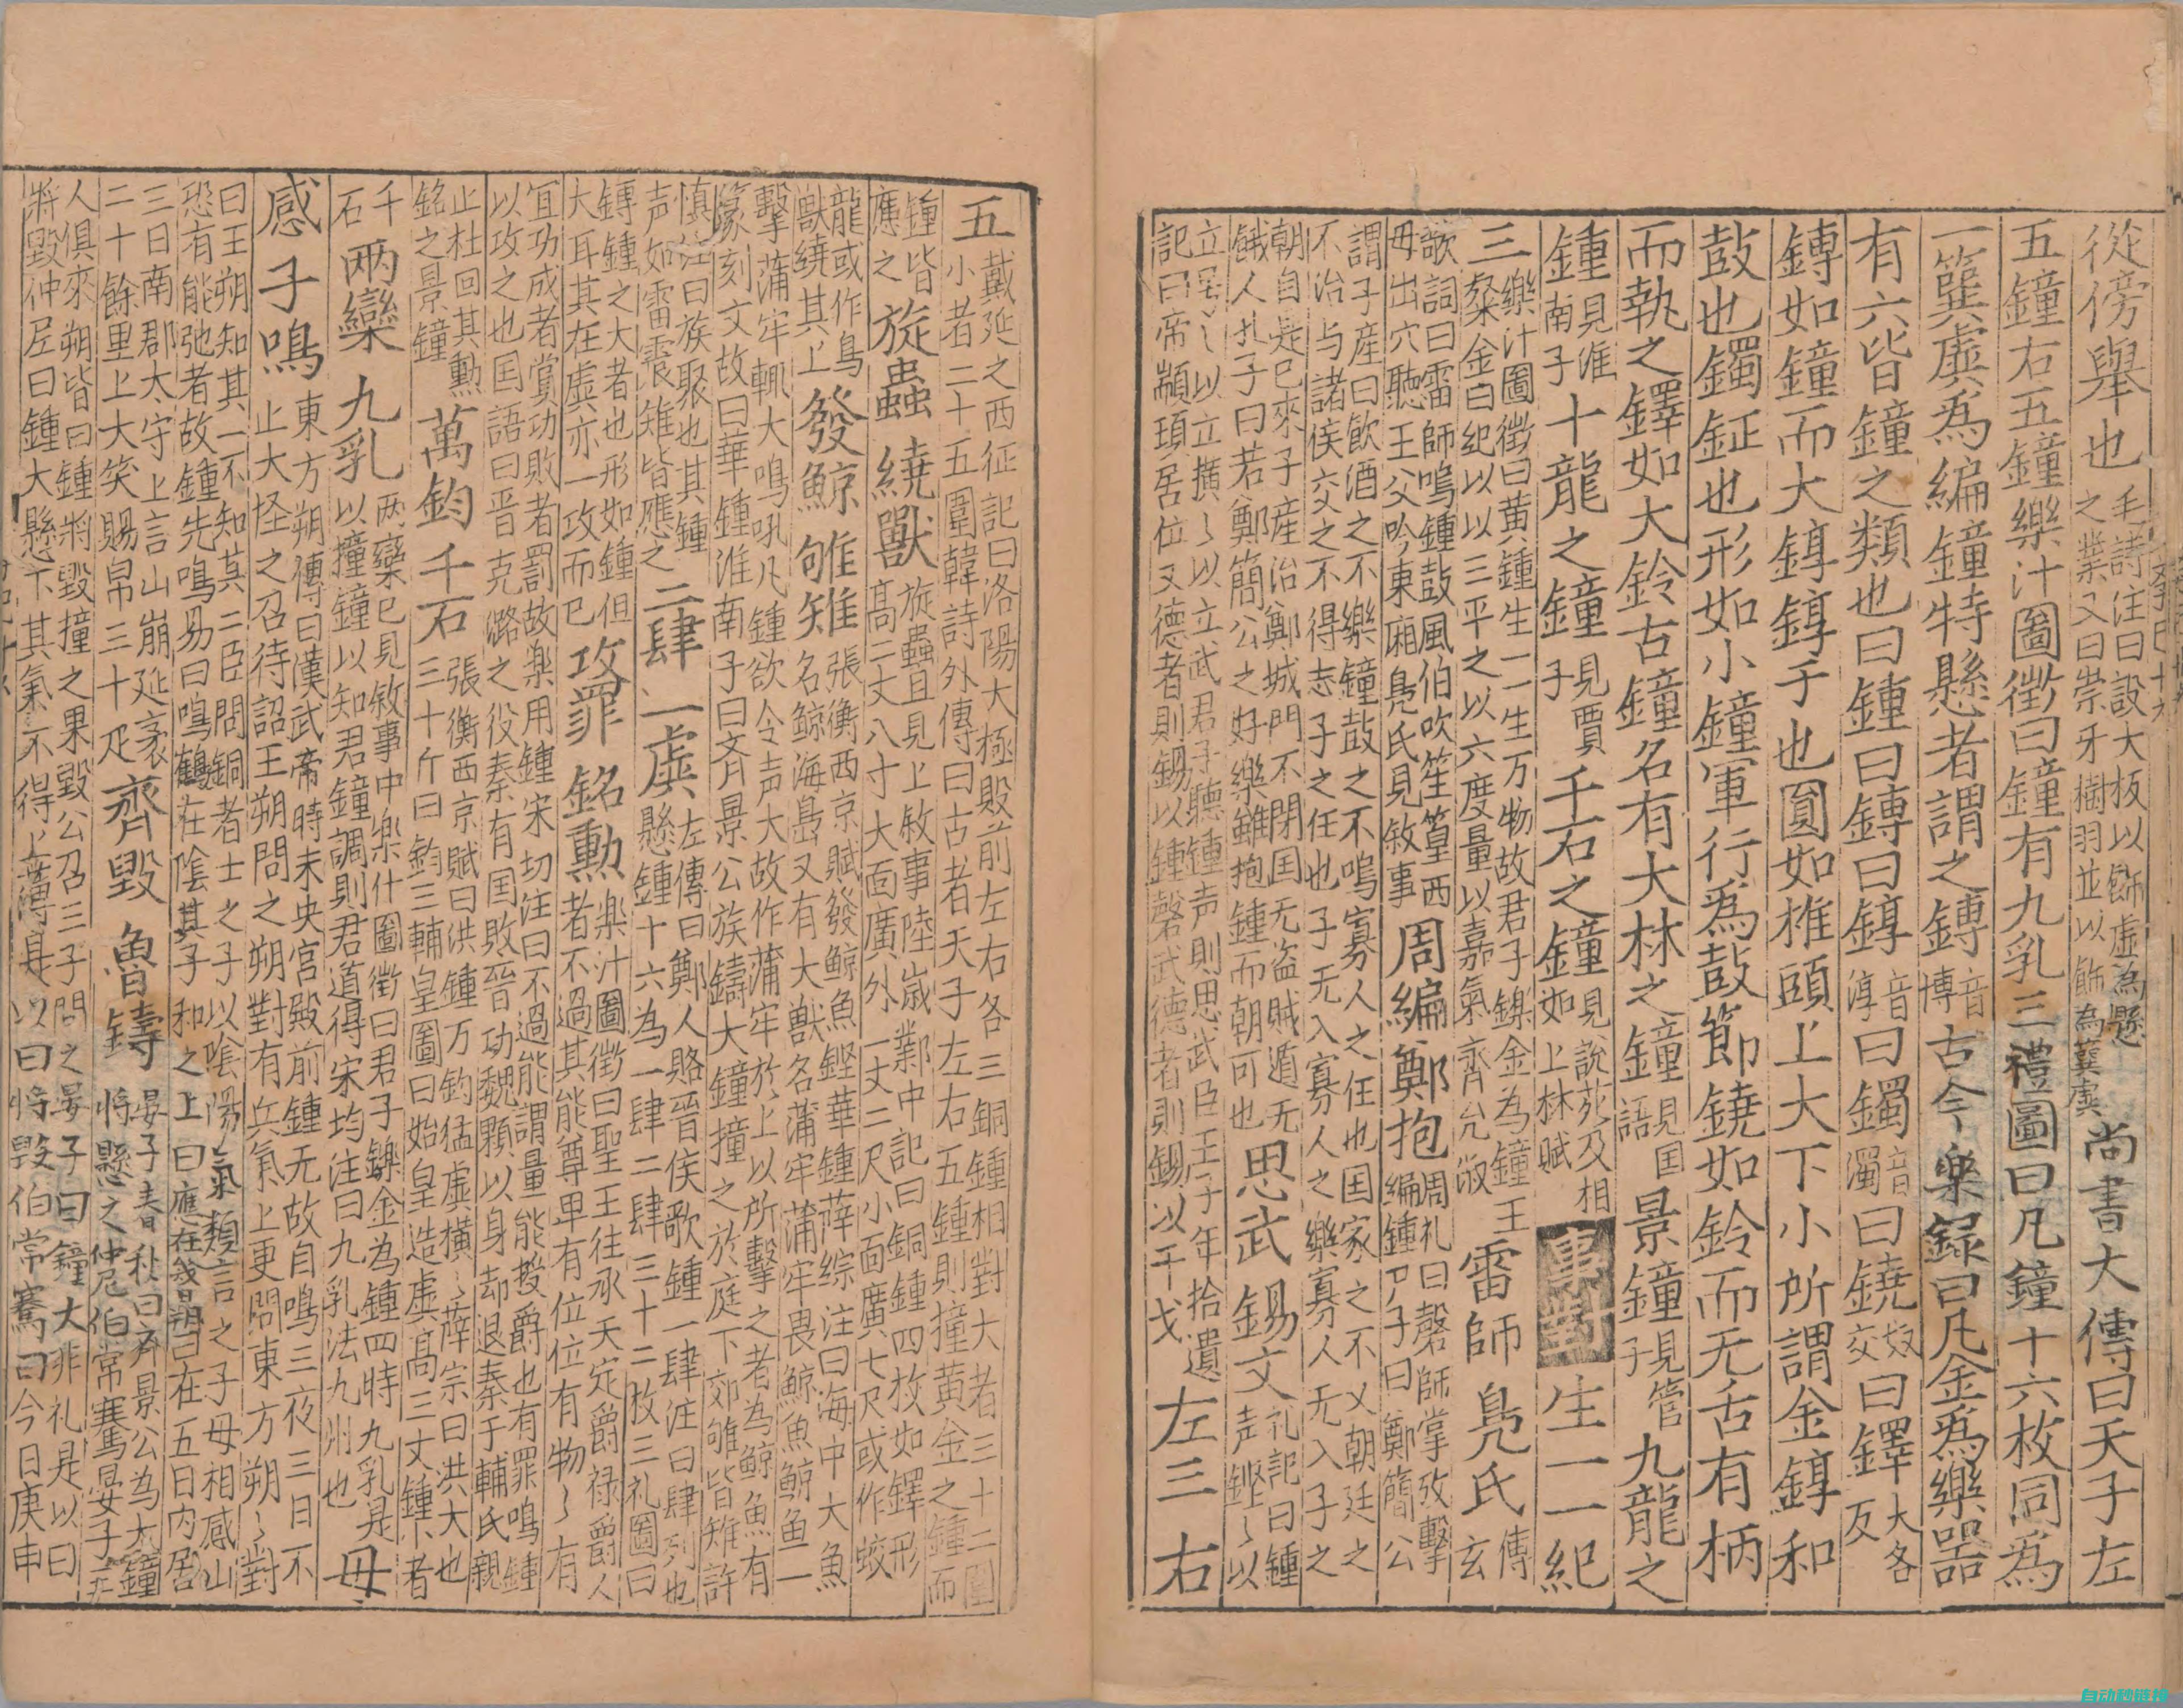 從傍舉也毛詩注曰設大板以飾虛為懸之業又曰崇牙樹羽並以飾為簨虡尚書大傳曰天子左
五鐘右五鐘樂汁圖徵曰鐘有九乳三禮圖曰凡鐘十六枚同爲
一簨虡爲編鐘特懸者謂之鎛音博古今樂録曰凡金爲樂器
有六皆鐘之類也曰鍾曰鎛曰錞音淳曰鐲音濁曰鐃奴交曰鐸大各反
鎛如鐘而大錞錞于也圓如椎頭上大下小所謂金錞和
鼓也鐲鉦也形如小鐘軍行爲鼓節鐃如鈴而无舌有柄
而執之鐸如大鈴古鐘名有大林之鐘見国語景鐘見管子九龍之
鍾見淮南子十龍之鐘見賈子千石之鐘見說苑及相如上林賦事對生一一紀
三樂汁圖徵曰黄鍾生一一生万物故君子鑠金為鐘王粲金曰紀以以三平之以六度量以嘉氣齊允雷師鳧氏傳玄
歌詞曰雷師鳴鍾鼓風伯吹笙篁西毋出穴聽王父吟東廂鳧氏見敘事周編鄭抱周礼曰磬師掌攻擊編鍾尸子曰鄭簡公
謂子産曰飲酒之不樂鐘鼓之不鳴寡人之任也国家之不乂朝廷之不治与諸侯交之不得志子之任也子无入寡人之樂寡人无入子之
朝自是已來子産治鄭城門不閉国无盗賊道无餓人孔子曰若鄭簡公之好樂雖抱鍾而朝可也思武錫文礼記曰鍾声鏗鏗以
立号号以立擴擴以立武君子聽鍾声則思武臣王子年拾遺記曰帝顓頊居位又德者則錫以鍾磬武德者則錫以干戈左三右
五戴延之西征記曰洛陽大極殿前左右各三銅鍾相對大者三十二圍小者二十五圍韓詩外傳曰古者天子左右五鍾則撞黄金之鍾而
鍾皆應之旋蟲繞獸旋蟲且見上敘事陸翽鄴中記曰銅鍾四枚如鐸形高二丈八寸大面廣外一丈二尺小面廣七尺或作蛟
龍或作鳥獸繞其上發鯨雊雉張衡西京賦發鯨魚鏗華鍾薛綜注曰海中大魚名鯨海島又有大獸名蒲牢蒲牢畏鯨魚鯨魚一
擊蒲牢輒大鳴吼凡鍾欲令声大故作蒲牢於上以所擊之者為鯨魚有篆刻文故曰華鍾淮南子曰齊景公族鑄大鐘撞之於庭下郊雊皆雉許
慎注曰族聚也其鍾声如雷震雉皆應之二肆一虡左傳曰鄭人賂晉侯歌鍾一肆注曰肆列也懸鍾十六為一肆二肆三十二枚三礼圖曰
鎛鍾之大者也形如鍾但大耳其在虡亦一攻而已攻罪銘勳樂汁圖徵曰聖王往承天定爵禄爵人者不過其能尊卑有位位有物物有
宜功成者賞功敗者罰故楽用鍾宋切注曰不過能謂量能授爵也有罪鳴鍾以攻之也国語曰晋克潞之役秦有国敗晉功魏顆以身却退秦于輔氏親
止杜回其勳銘之景鐘萬鈞千石張衡西京賦曰洪鍾万鈞猛虡橫橫薛宗曰洪大也三十斤曰鈞三輔皇圖曰始皇造虡高三丈鍾下者
千石两欒九乳两欒已見敘事中楽什圖徵曰君子鑠金為鍾四時九乳是以撞鐘以知君鐘調則君道得宋均注曰九乳法九州也毋
感子鳴東方朔傳曰漢武帝時未央宮殿前鍾无故自鳴三夜三日不止大怪之召待詔王朔問之朔對有兵氣上更問東方朔朔對
曰王朔知其一不知其二臣聞銅者士之子以陰陽氣類言之子母相感山恐有能弛者故鍾先鳴易曰鳴鶴在陰其子和之上曰應在幾日朔曰在五日内居
三日南郡太守上言山崩延袤二十餘里上大笑賜帛三十疋齊毀魯鑄晏子春秋曰齊景公為大鐘將懸之仲尼伯常騫晏子三
人俱來朔皆曰鍾將毀撞之果毀公召三子問之晏子曰鐘大非礼是以曰將毀仲尼曰鍾大懸下其氣不得上薄是以曰將毀伯常騫曰今日庚申
自动秒链接